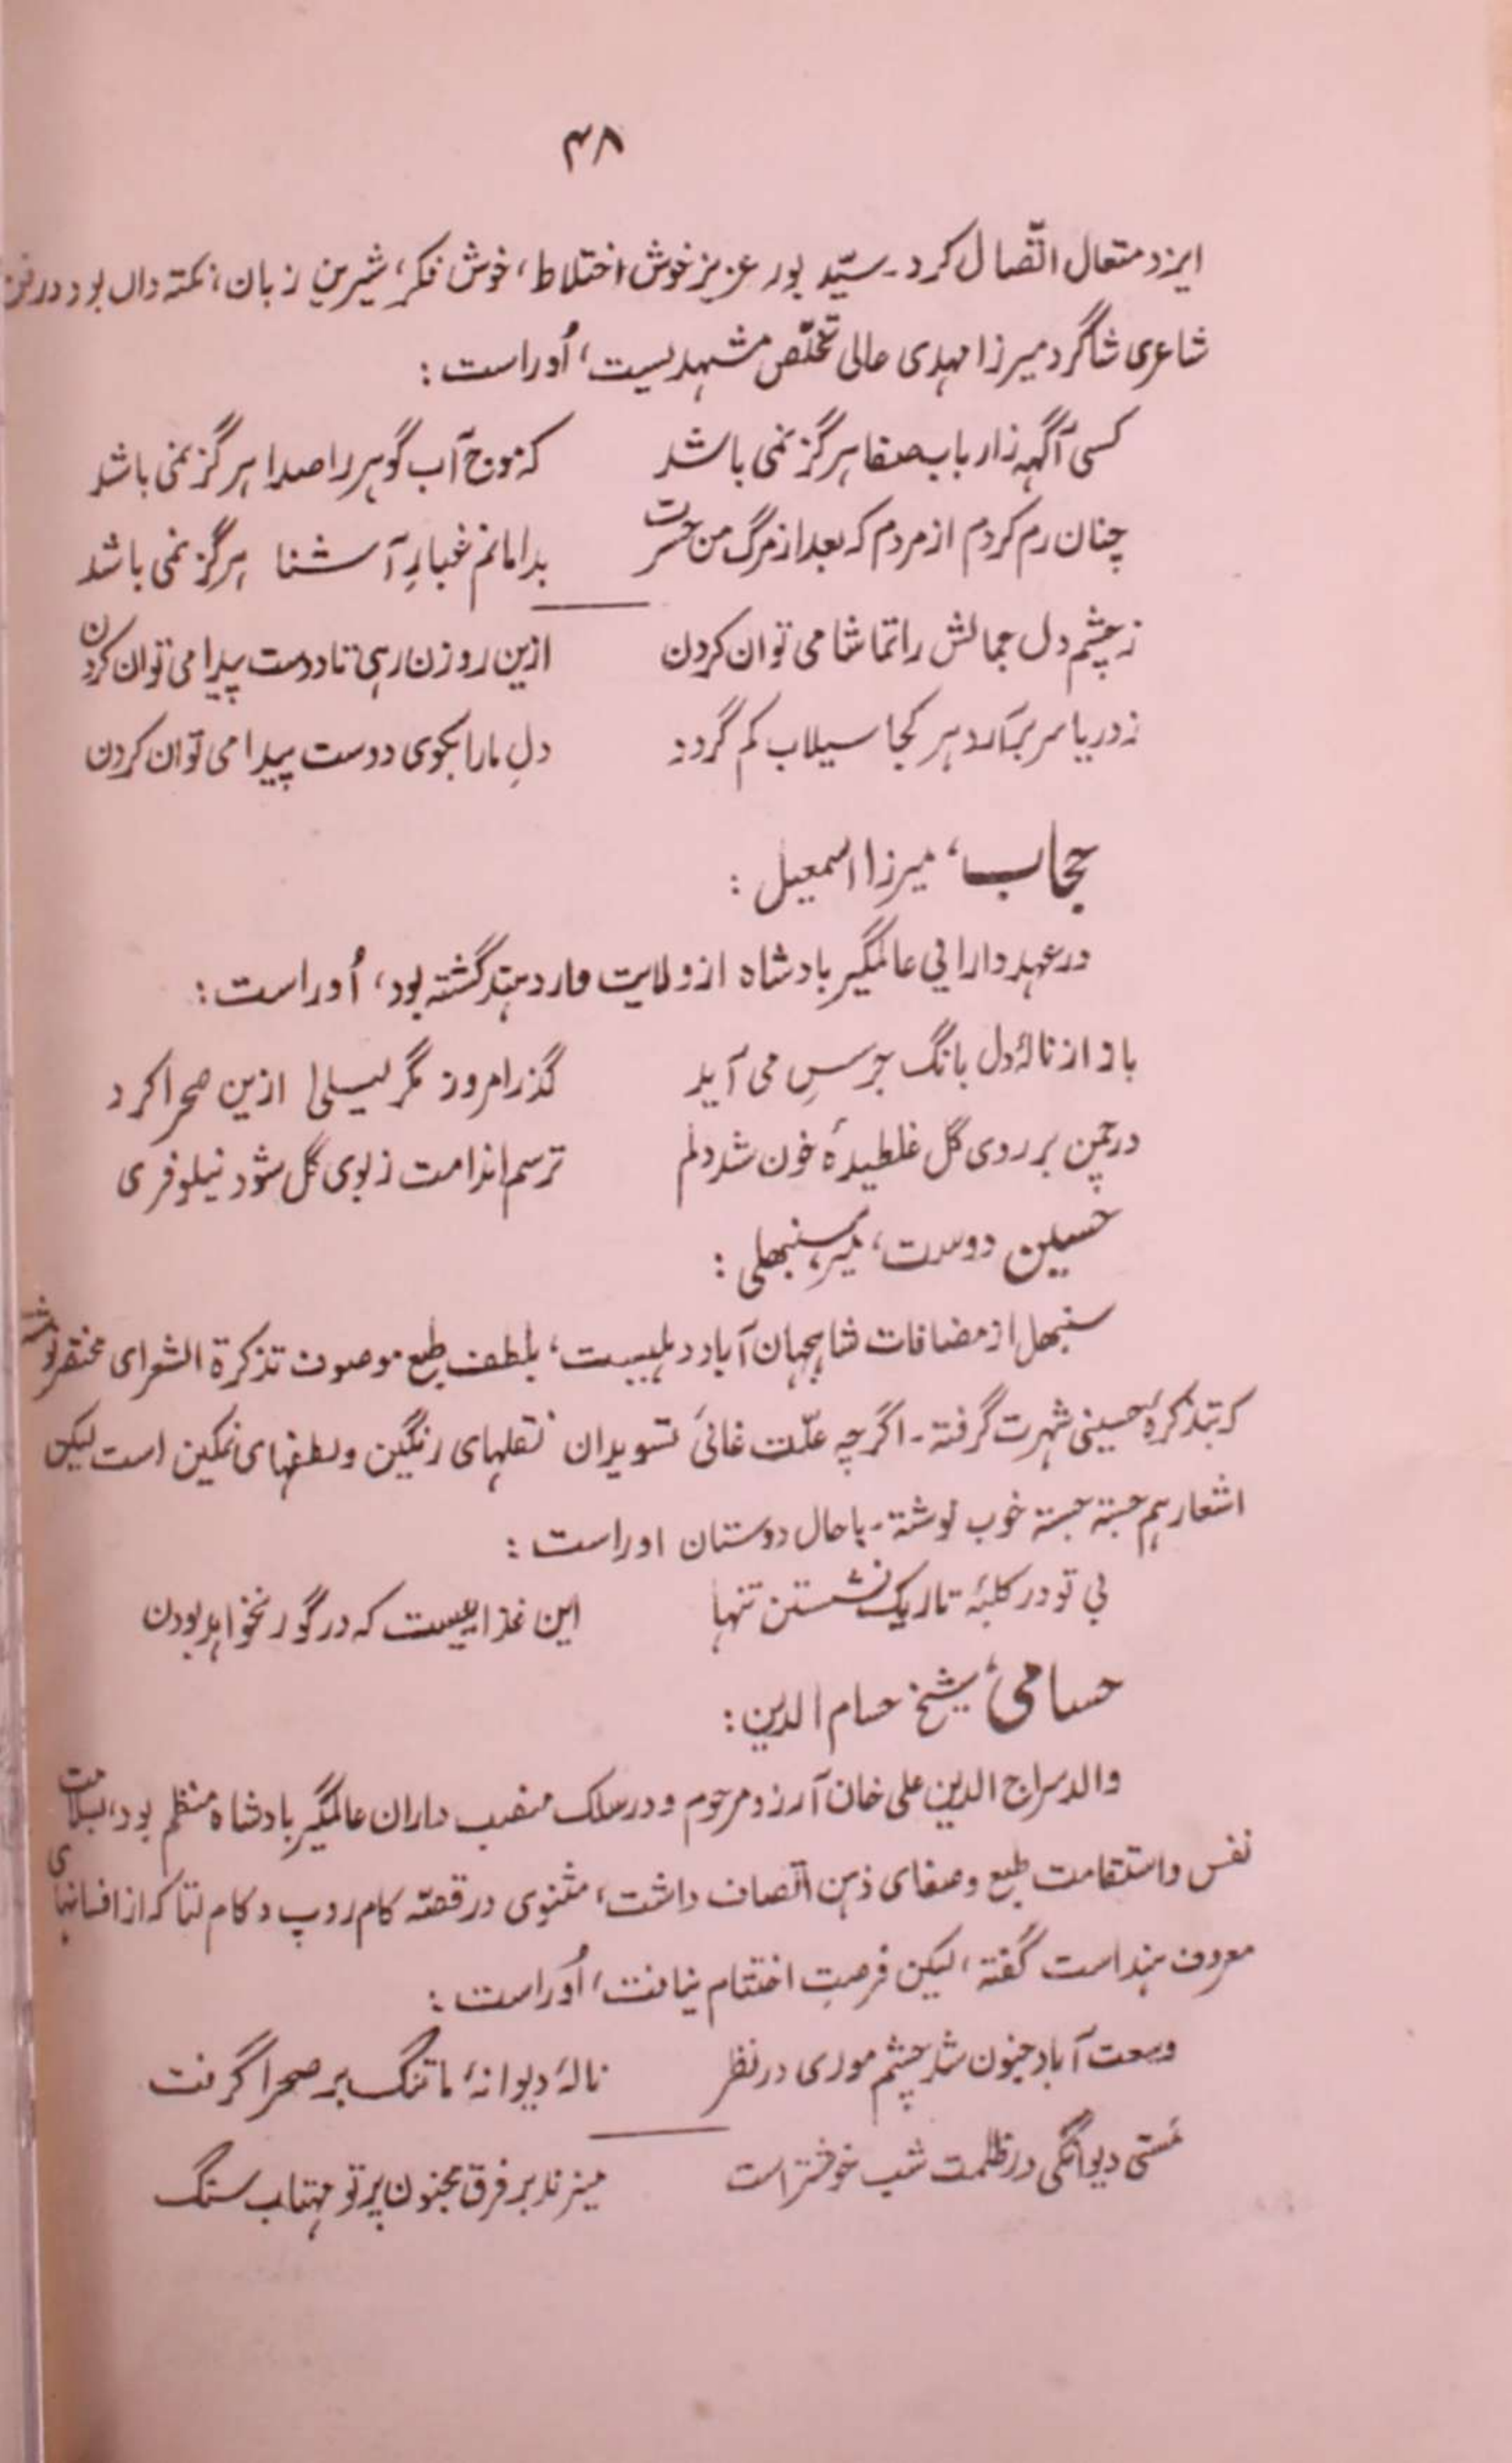 ۴۸
ایزد متعال اتّصال کرد۔ سیّد بود عزیز خوش اختلاط، خوش فکر، شیرین زبان، نکته داں بود در فن
شاعری شاگرد میرزا مهدی عالی تخلّص مشهدیست، اُوراست :
کسی آگهه ز ارباب صفا هرگز نمی باشد    که موج آب گوهر را صدا هرگز نمی باشد
چنان رم کردم از مردم که بعد از مرگ من حسرت    بدامانم غبارِ آشنا هرگز نمی باشد
ز چشم دل جمالش را تماشا می توان کردن    ازین روزن رهی تا دوست پیدا می توان کردن
ز دریا سر برآرد هر کجا سیلاب کم گردد    دلِ ما را بکوی دوست پیدا می توان کردن
حجاب، میرزا اسمعیل :
در عهد دارایی عالمگیر بادشاه از ولایت وارد هند گشته بود، اُوراست :
باز از نالۂ دل بانگ جرسِ می آید    گذر امروز مگر لیلیٰ ازین صحرا کرد
در چمن بر روی گل غلطیدۂ خون شد دلم    ترسم اندامت ز بوی گل شود نیلوفری
حسین دوست، میر سنبهلی :
سنبهل از مضافات شاهجهان آباد دهلیست، بلطف طبع موصوف تذکرة الشعرای مختصر نوشته
که بتذکرۂ حسینی شهرت گرفته۔ اگرچه علّت غائی تسوید ان نقلهای رنگین و لطفهای نمکین است لیکن
اشعار هم جسته جسته خوب نوشته۔ با حال دوستان اوراست :
بی تو در کلبۂ تاریک نشستن تنها    این عذابیست که در گور نخواهد بودن
حسامی، شیخ حسام الدین :
والد سراج الدین علی خان آرزو مرحوم و در سلک منصب داران عالمگیر بادشاه منظم بود، بسلامت
نفس و استقامت طبع و صفای ذهن اتصاف داشت، مثنوی در قصّه کام روپ و کام لتا که از افسانهای
معروف هند است گفته، لیکن فرصتِ اختتام نیافت، اُوراست :
وسعت آباد جنون شد چشم موری در نظر    نالۂ دیوانۂ ما تنگ بر صحرا گرفت
مستی دیوانگی در ظلمت شب خوشتر است    میزند بر فرق مجنون پرتو مهتاب سنگ